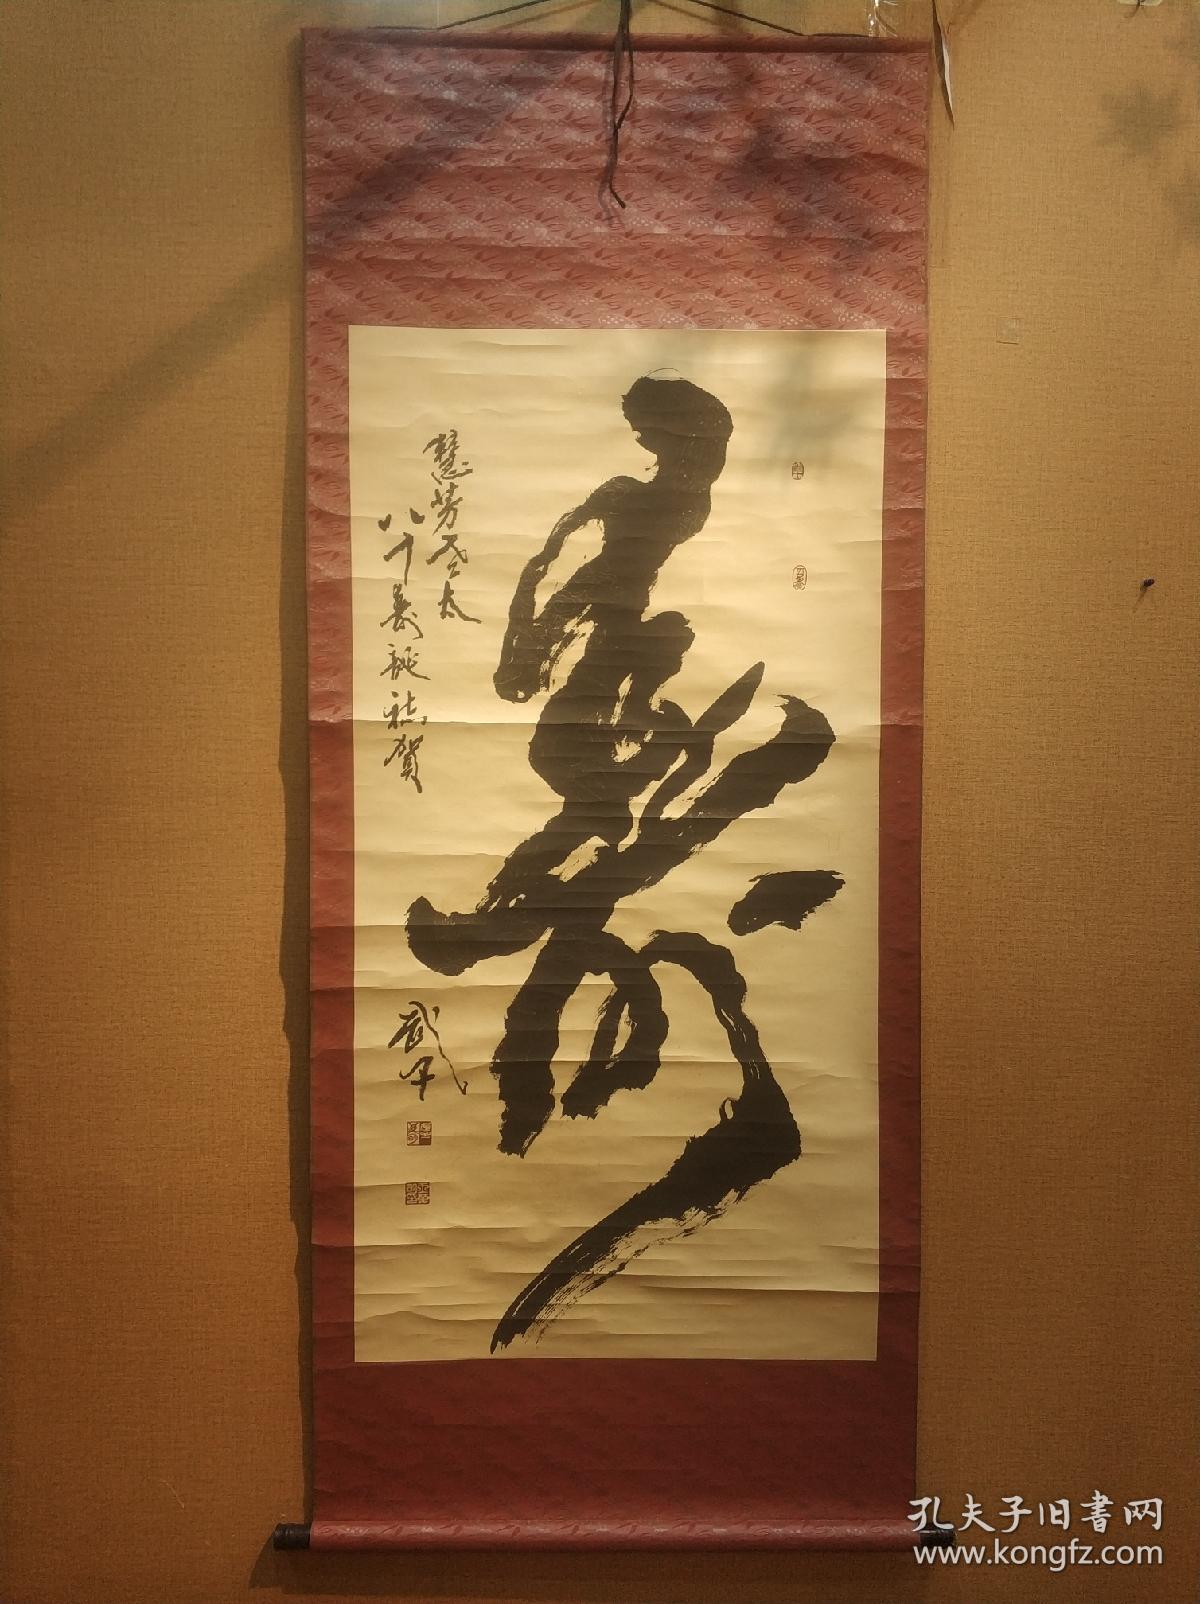 壽
慧芳老太
八十壽誕誌賀
武平
孔夫子旧書网
www.kongfz.com